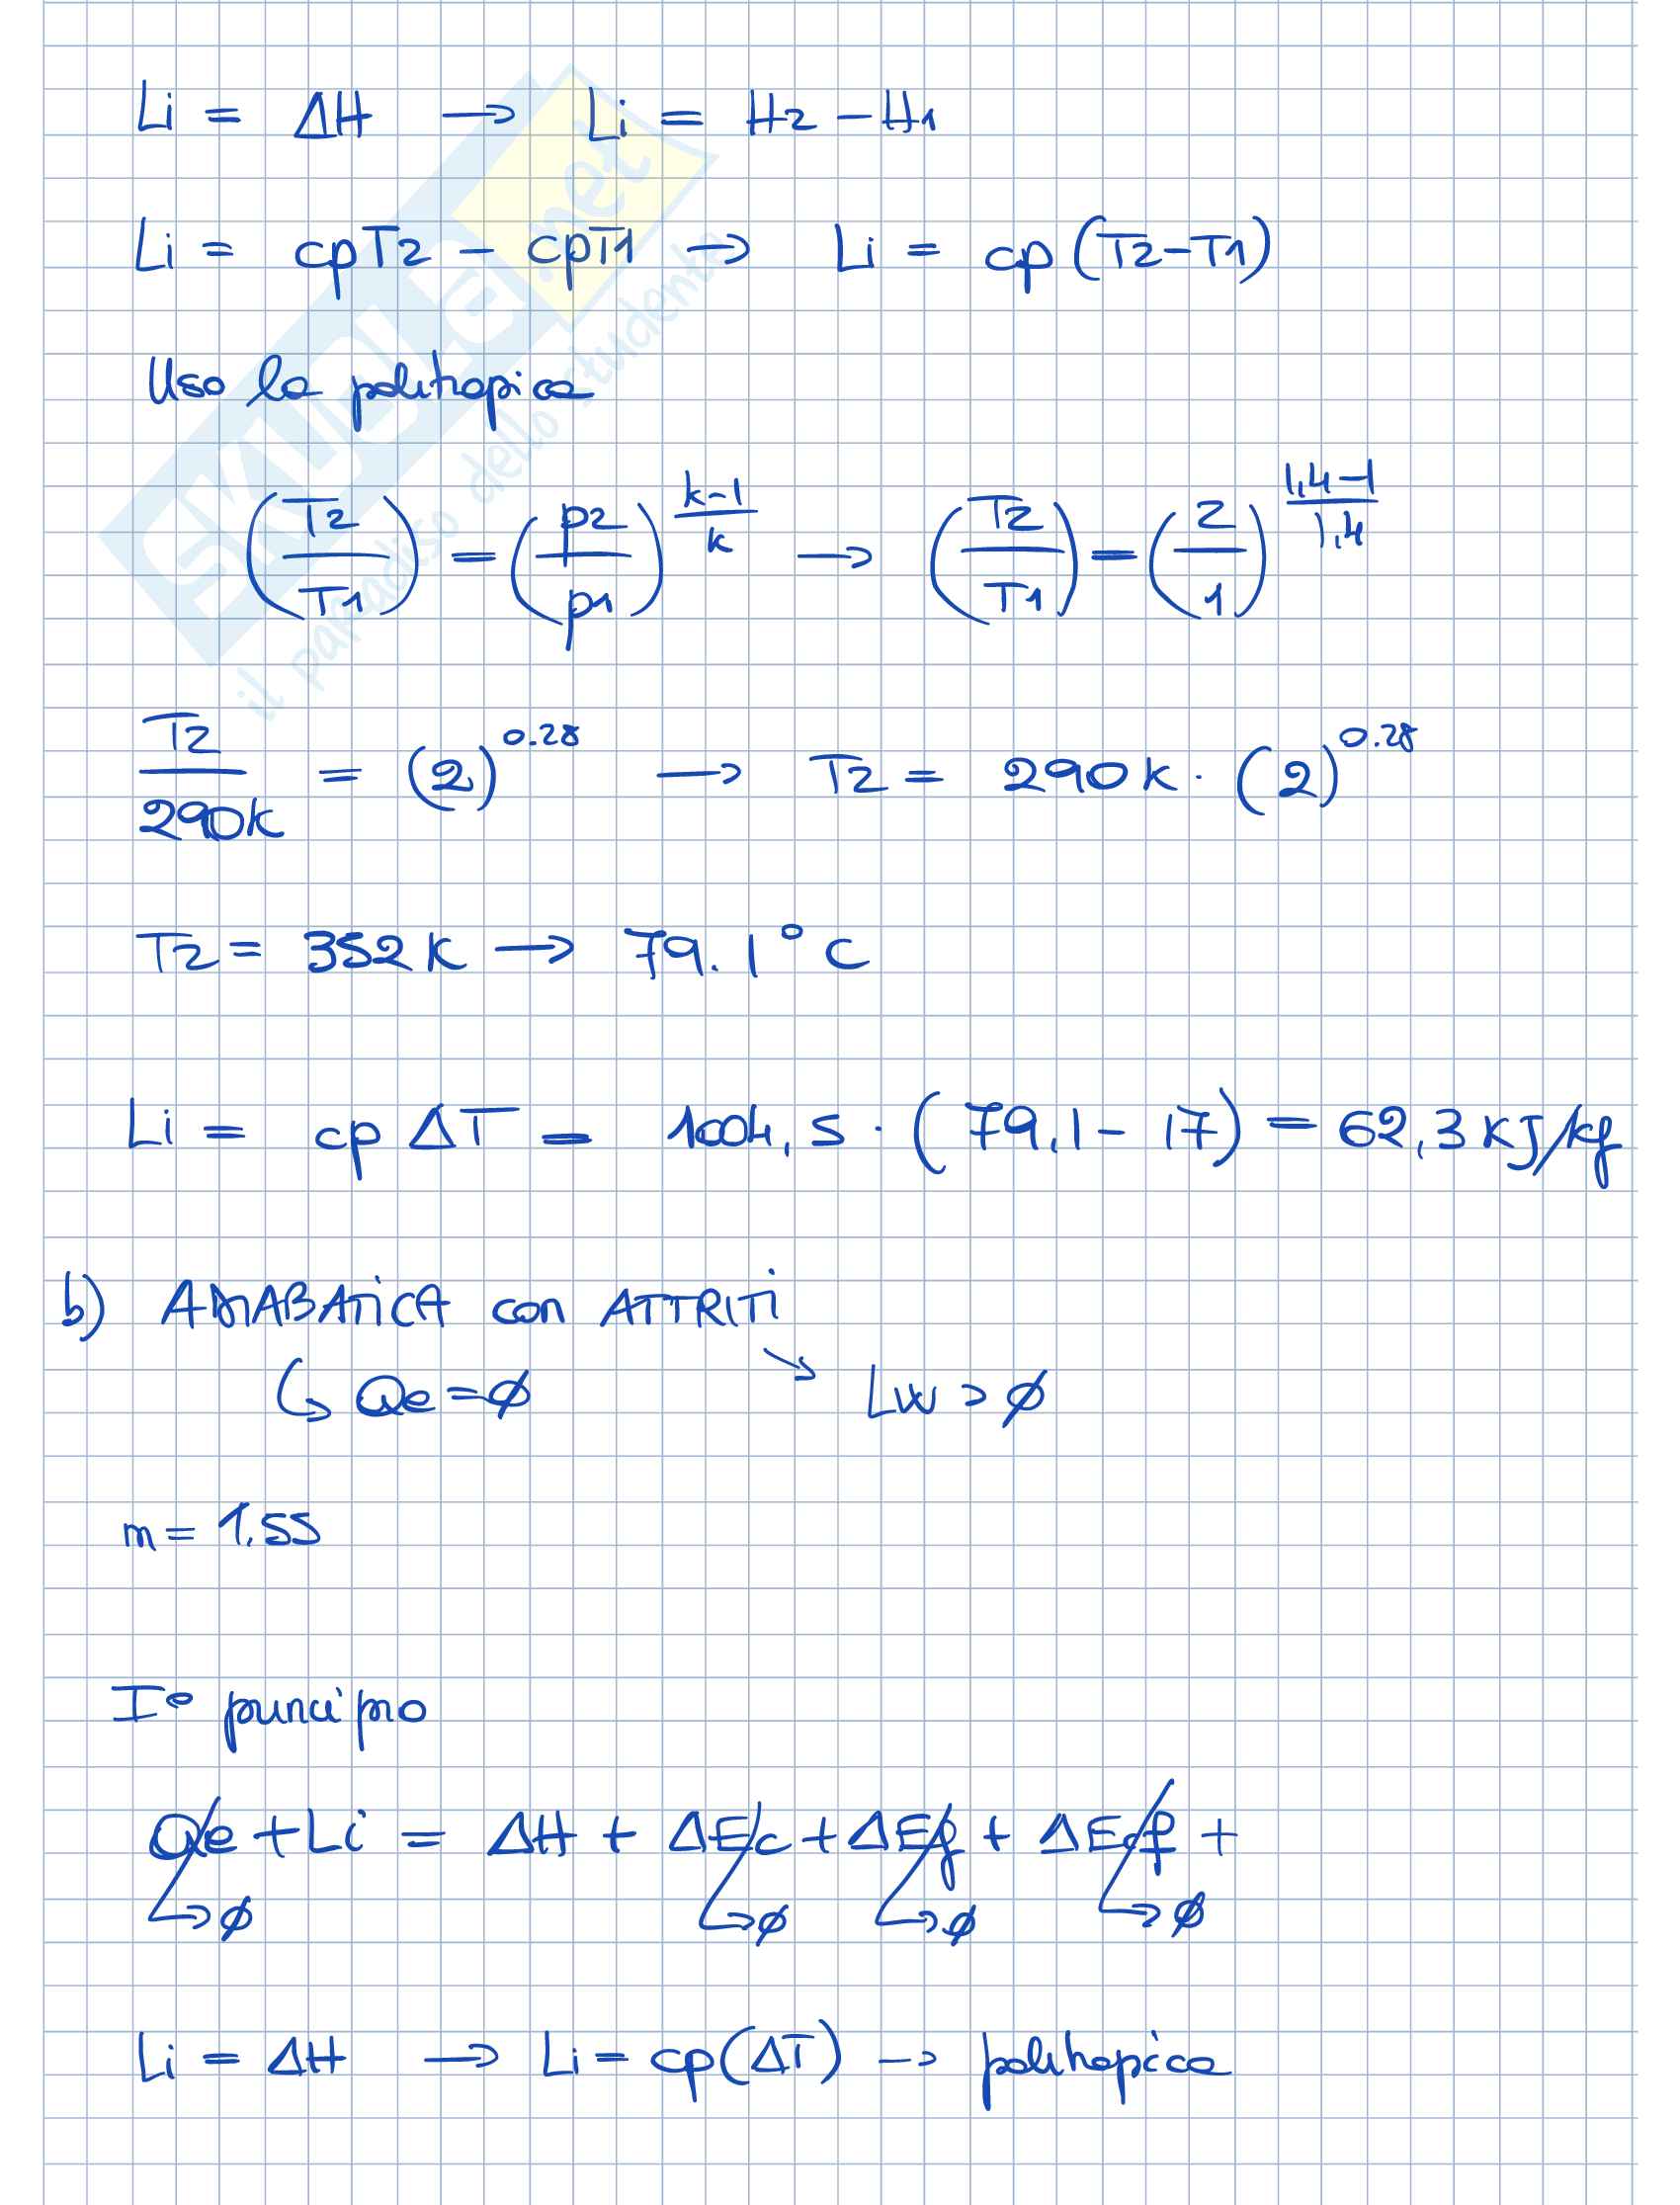 Li = ΔH → Li = H2 - H1
Li = cpT2 - cpT1 → Li = cp (T2-T1)
Uso la politropica
(T2/T1) = (p2/p1)^((k-1)/k) → (T2/T1) = (2/1)^((1,4-1)/1,4)
T2/290K = (2)^0.28 → T2 = 290K · (2)^0.28
T2 = 352K → 79.1°C
Li = cp ΔT = 1004,5 · (79,1 - 17) = 62,3 KJ/kg
b) ADIABATICA con ATTRITI
↳ Qe = ∅ ↘ Lw > ∅
m = 1.55
I° principio
Qe + Li = ΔH + ΔEc + ΔEg + ΔEcf +
↳ ∅ ↳ ∅ ↳ ∅ ↳ ∅
Li = ΔH → Li = cp(ΔT) → politropica
SKUOLA.net
il paradiso dello studente